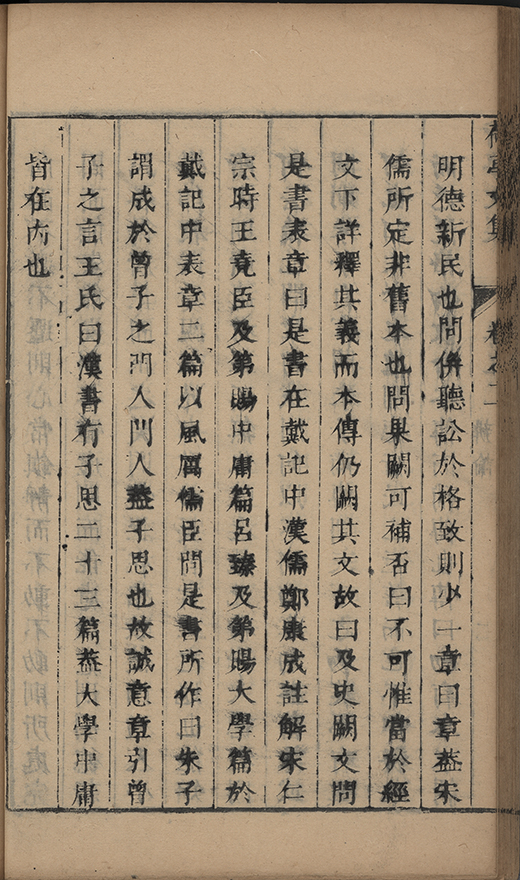 亭文集 卷之二
明德新民也問併聽訟於格致則少一章曰章蓋宋
儒所定非舊本也問果闕可補否曰不可惟當於經
文下詳釋其義而本傳仍闕其文故曰及史闕文問
是書表章曰是書在戴記中漢儒鄭康成註解宋仁
宗時王堯臣及第賜中庸篇呂臻及第賜大學篇於
戴記中表章二篇以風厲儒臣問是書所作曰朱子
謂成於曾子之門人門人蓋子思也故誠意章引曾
子之言王氏曰漢書有子思二十三篇蓋大學中庸
皆在內也